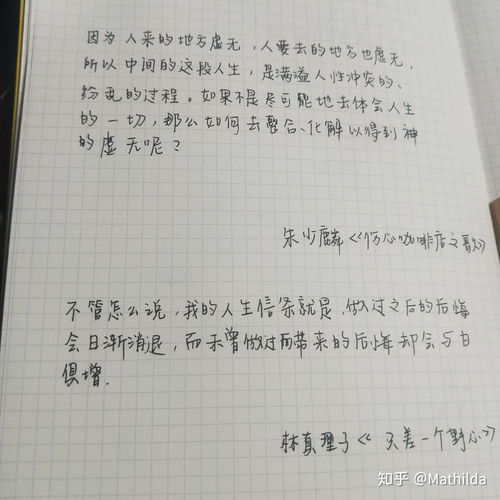 因为人来的地方虚无，人要去的地方也虚无，
所以中间的这段人生，是满溢人性冲突的、
纷乱的过程。如果不是尽可能地去体会人生
的一切，那么如何去整合、化解以得到神
的虚无呢？
朱少麟《伤心咖啡店之歌》
不管怎么说，我的人生信条就是，做过之后的后悔
会日渐消退，而未曾做过而带来的后悔却会与日
俱增.
林真理子《只差一个野心》
知乎 @Mathilda